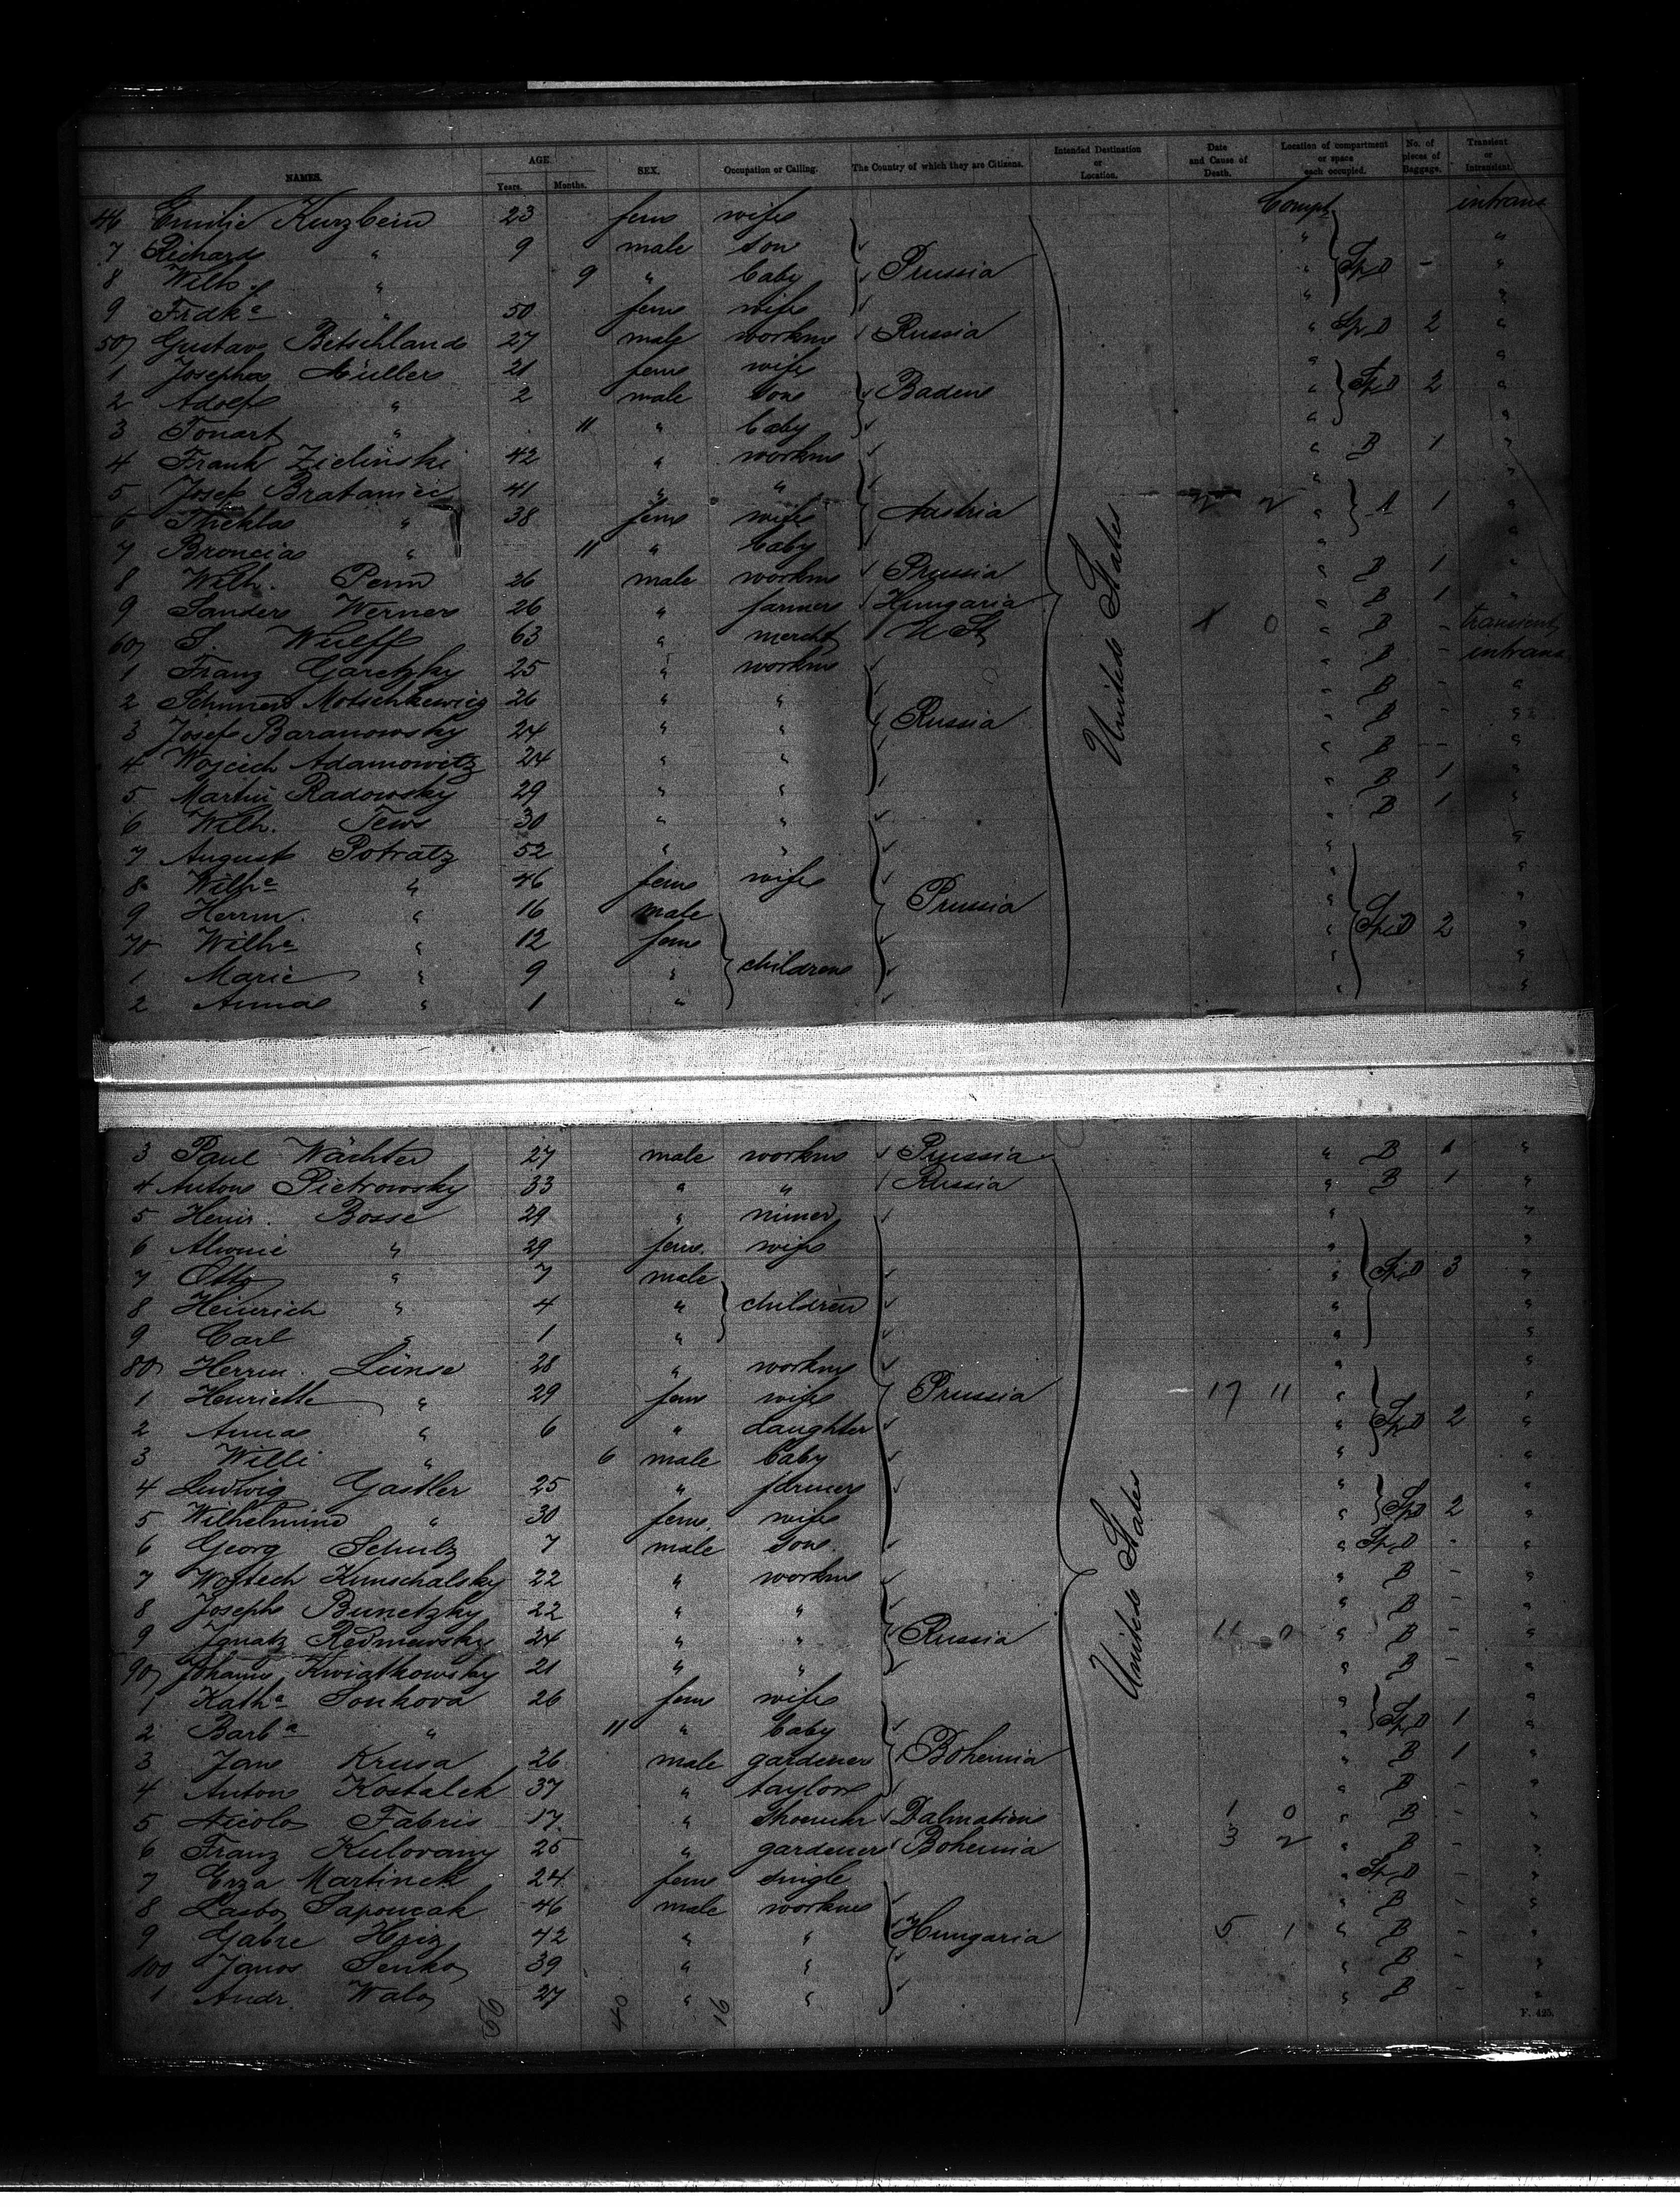 NAMES. AGE. Years. Months. SEX. Occupation or Calling. The Country of which they are Citizens. Intended Destination or Location. Date and Cause of Death. Location of compartment or space each occupied. No. of pieces of Baggage. Transient or Intransient.
46 Emilie Kurzbein 23 fem wife Compt intrans
7 Richard " 9 male son "
8 Wilh. " 9 " baby Prussia " Sp. D - "
9 Frdke " 50 fem wife " "
50 Gustav Betschland 27 male workm Russia " Sp. D 2 "
1 Josepha Müller 21 fem wife " "
2 Adolf " 2 male son Baden " Sp. D 2 "
3 " 11 " baby " "
4 Frank Zielinski 42 " workm " B 1 "
5 Josef 41 " " " "
6 Thekla " 38 fem wife Austria " A 1 "
7 Broncia " 11 " baby " "
8 Wilh. Penn 26 male workm Prussia " B 1 "
9 Sander Werner 26 " farmer Hungaria " B 1 "
60 S. Wulff 63 " mercht U St 0 " B - transient
1 Franz Garetzky 25 " workm " B - intrans
2 Motschkewicz 26 " " " B - "
3 Josef Baranowsky 24 " " Russia " B - "
4 Wojcich Adamowitz 24 " " " B - "
5 Martin Radowsky 29 " " " B 1 "
6 Wilh. Tews 30 " " " B 1 "
7 August Potratz 52 " " " "
8 Wilhe " 46 fem wife " "
9 Herrm. " 16 male Prussia " "
70 Wilhe " 12 fem " Sp. D 2 "
1 Marie " 9 " children " "
2 Anna " 1 " " "
United States
3 Paul Wächter 27 male workm Prussia " B 1 "
4 Anton Pietrowsky 33 " " Russia " B 1 "
5 Heinr. Bosse 29 " miner " "
6 Alwine " 29 fem. wife " "
7 Otto " 7 male " Sp. D 3 "
8 Heinrich " 4 " children " "
9 Carl " 1 " " "
80 Herrm. Lünse 28 " workm " "
1 Henriette " 29 fem wife Prussia 17 11 " "
2 Anna " 6 " daughter " Sp. D 2 "
3 Willi " 6 male baby " "
4 Ludwig Gastler 25 " farmer " "
5 Wilhelmine " 30 fem. wife " Sp. D 2 "
6 Georg Schulz 7 male son " Sp. D - "
7 Wojtech Kunschalsky 22 " workm " B - "
8 Joseph Bunetzky 22 " " " B - "
9 Ignatz 24 " " Russia 11 0 " B - "
90 Johann Kwiatkowsky 21 " " " B - "
1 Kathe Soukova 26 fem wife " "
2 Barba " 11 " baby " Sp. D 1 "
3 Jan Krusa 26 male gardener Bohemia " B 1 "
4 Anton Kostalek 37 " taylor " B - "
5 Nicolo Fabris 17 " shoemkr Dalmatien 1 0 " B - "
6 Franz Kulovany 25 " gardener Bohemia 3 2 " B - "
7 Erza Martinek 24 fem single " Sp. D - "
8 Sapoucak 46 male workm " B - "
9 Gabre Hriz 42 " " Hungaria 5 1 " B - "
100 Janos Senko 39 " " " B - "
1 Andr. Walo 27 " " " B - "
United States
40 16
F. 425.